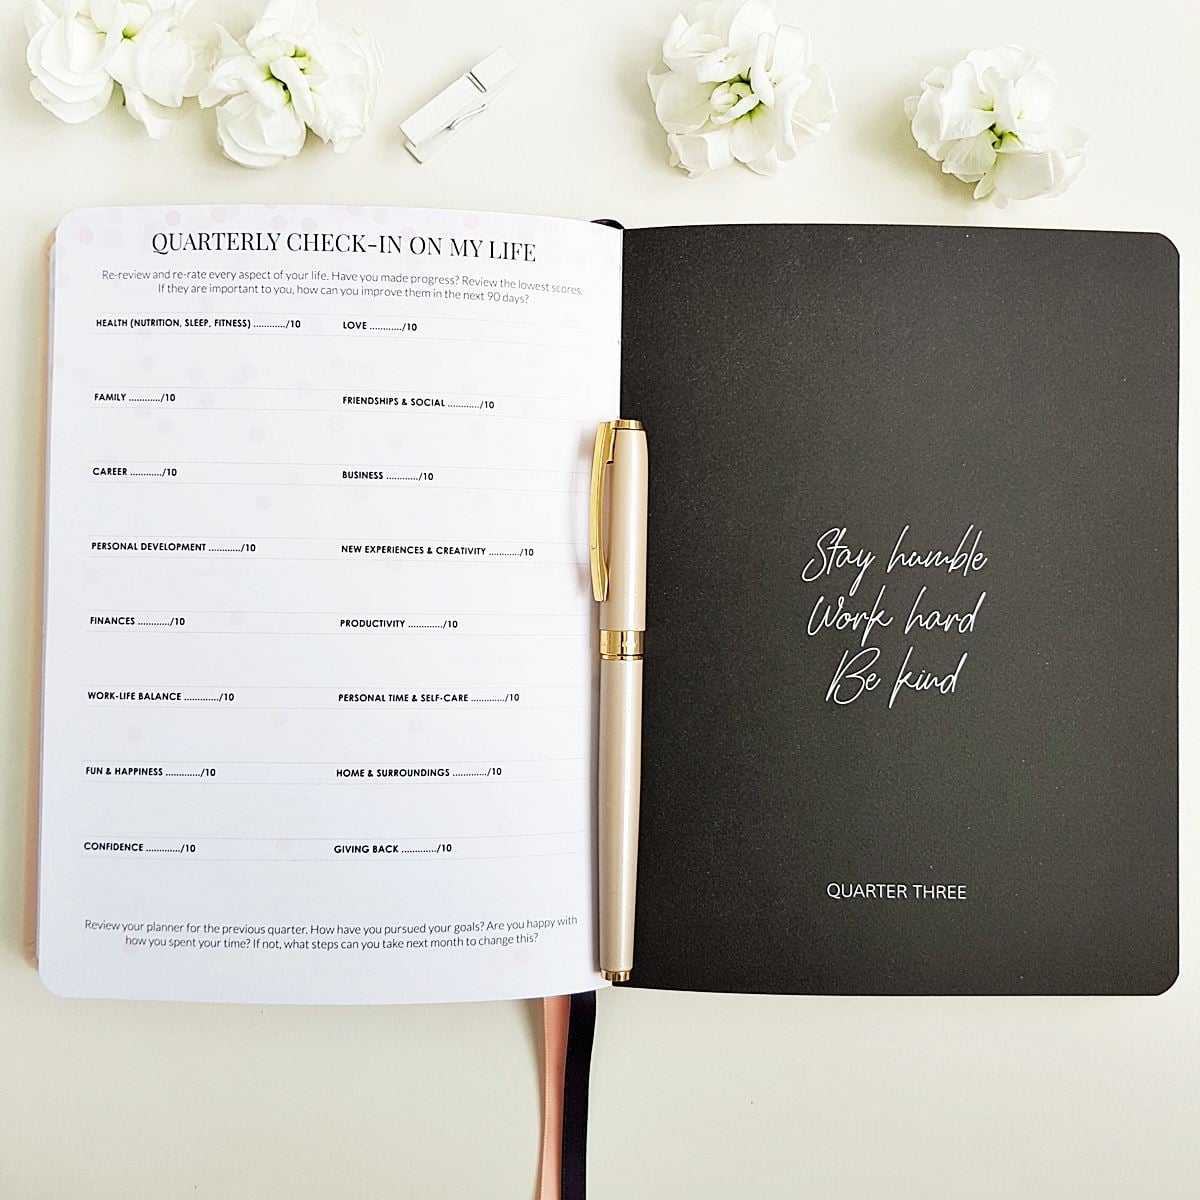 QUARTERLY CHECK-IN ON MY LIFE
Re-review and re-rate every aspect of your life. Have you made progress? Review the lowest scores.
If they are important to you, how can you improve them in the next 90 days?
HEALTH (NUTRITION, SLEEP, FITNESS) ............/10
LOVE ............/10
FAMILY ............/10
FRIENDSHIPS & SOCIAL ............/10
CAREER ............/10
BUSINESS ............/10
PERSONAL DEVELOPMENT ............/10
NEW EXPERIENCES & CREATIVITY ............/10
FINANCES ............/10
PRODUCTIVITY ............/10
WORK-LIFE BALANCE ............/10
PERSONAL TIME & SELF-CARE ............/10
FUN & HAPPINESS ............/10
HOME & SURROUNDINGS ............/10
CONFIDENCE ............/10
GIVING BACK ............/10
Review your planner for the previous quarter. How have you pursued your goals? Are you happy with
how you spent your time? If not, what steps can you take next month to change this?
Stay humble
Work hard
Be kind
QUARTER THREE